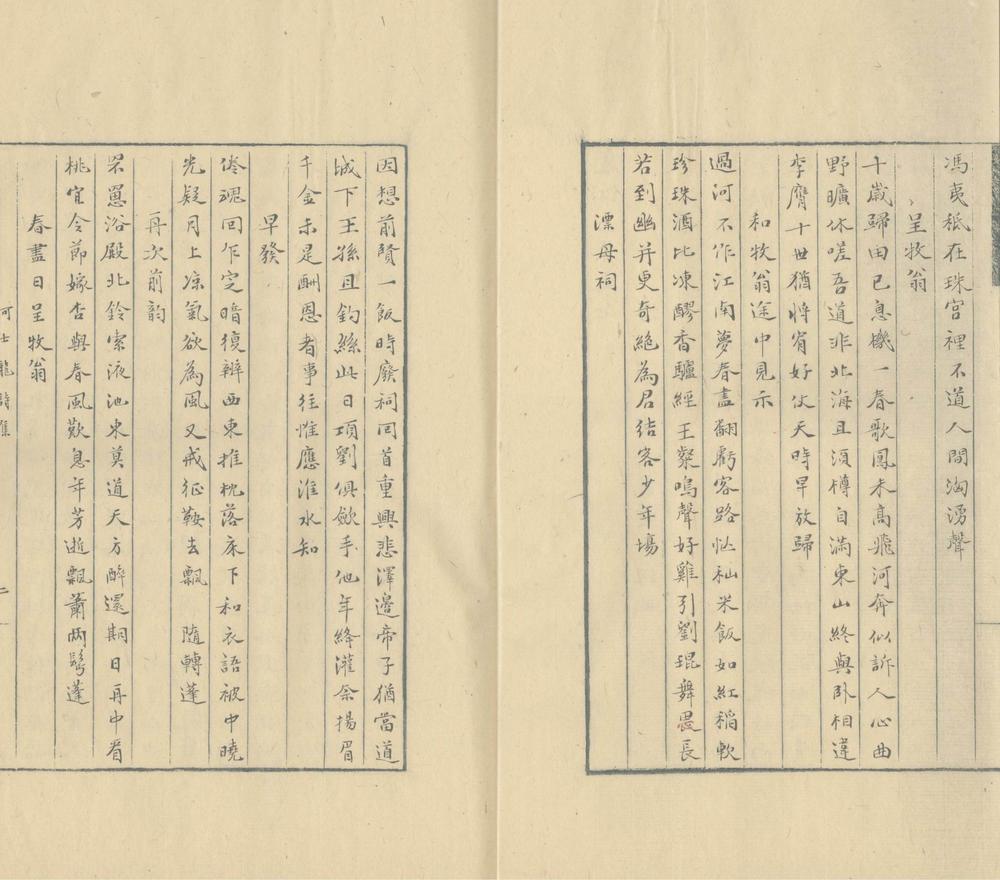 馮夷秪在珠宮裡不道人間洶湧聲
呈牧翁
十歲歸田已息機一春歌鳳未高飛河奔似訴人心曲
野曠休嗟吾道非北海且須樽自滿東山終與臥相違
李膺十世猶將宥好仗天時早放歸
和牧翁途中見示
過河不作江南夢春盡翻虧客路忙秈米飯如紅稻軟
珍珠酒比凍醪香驢經王粲鳴聲好雞引劉琨舞晷長
若到幽并更奇絕為君結客少年場
漂母祠
因想前賢一飯時廢祠回首重興悲澤邊帝子猶當道
城下王孫且釣絲此日項劉俱歛手他年絳灌余揚眉
千金未是酬恩者事往惟應淮水知
早發
倦魂回乍定暗復辨西東推枕落床下和衣語被中曉
光疑月上凉氣欲為風又戒征鞍去飄 隨轉蓬
再次前韵
罘罳浴殿北鈴索液池東莫道天方醉還期日再中看
桃宜令節嫁杏與春風歎息年芳逝飄蕭兩鬓蓬
春盡日呈牧翁
何士龍詩集
二